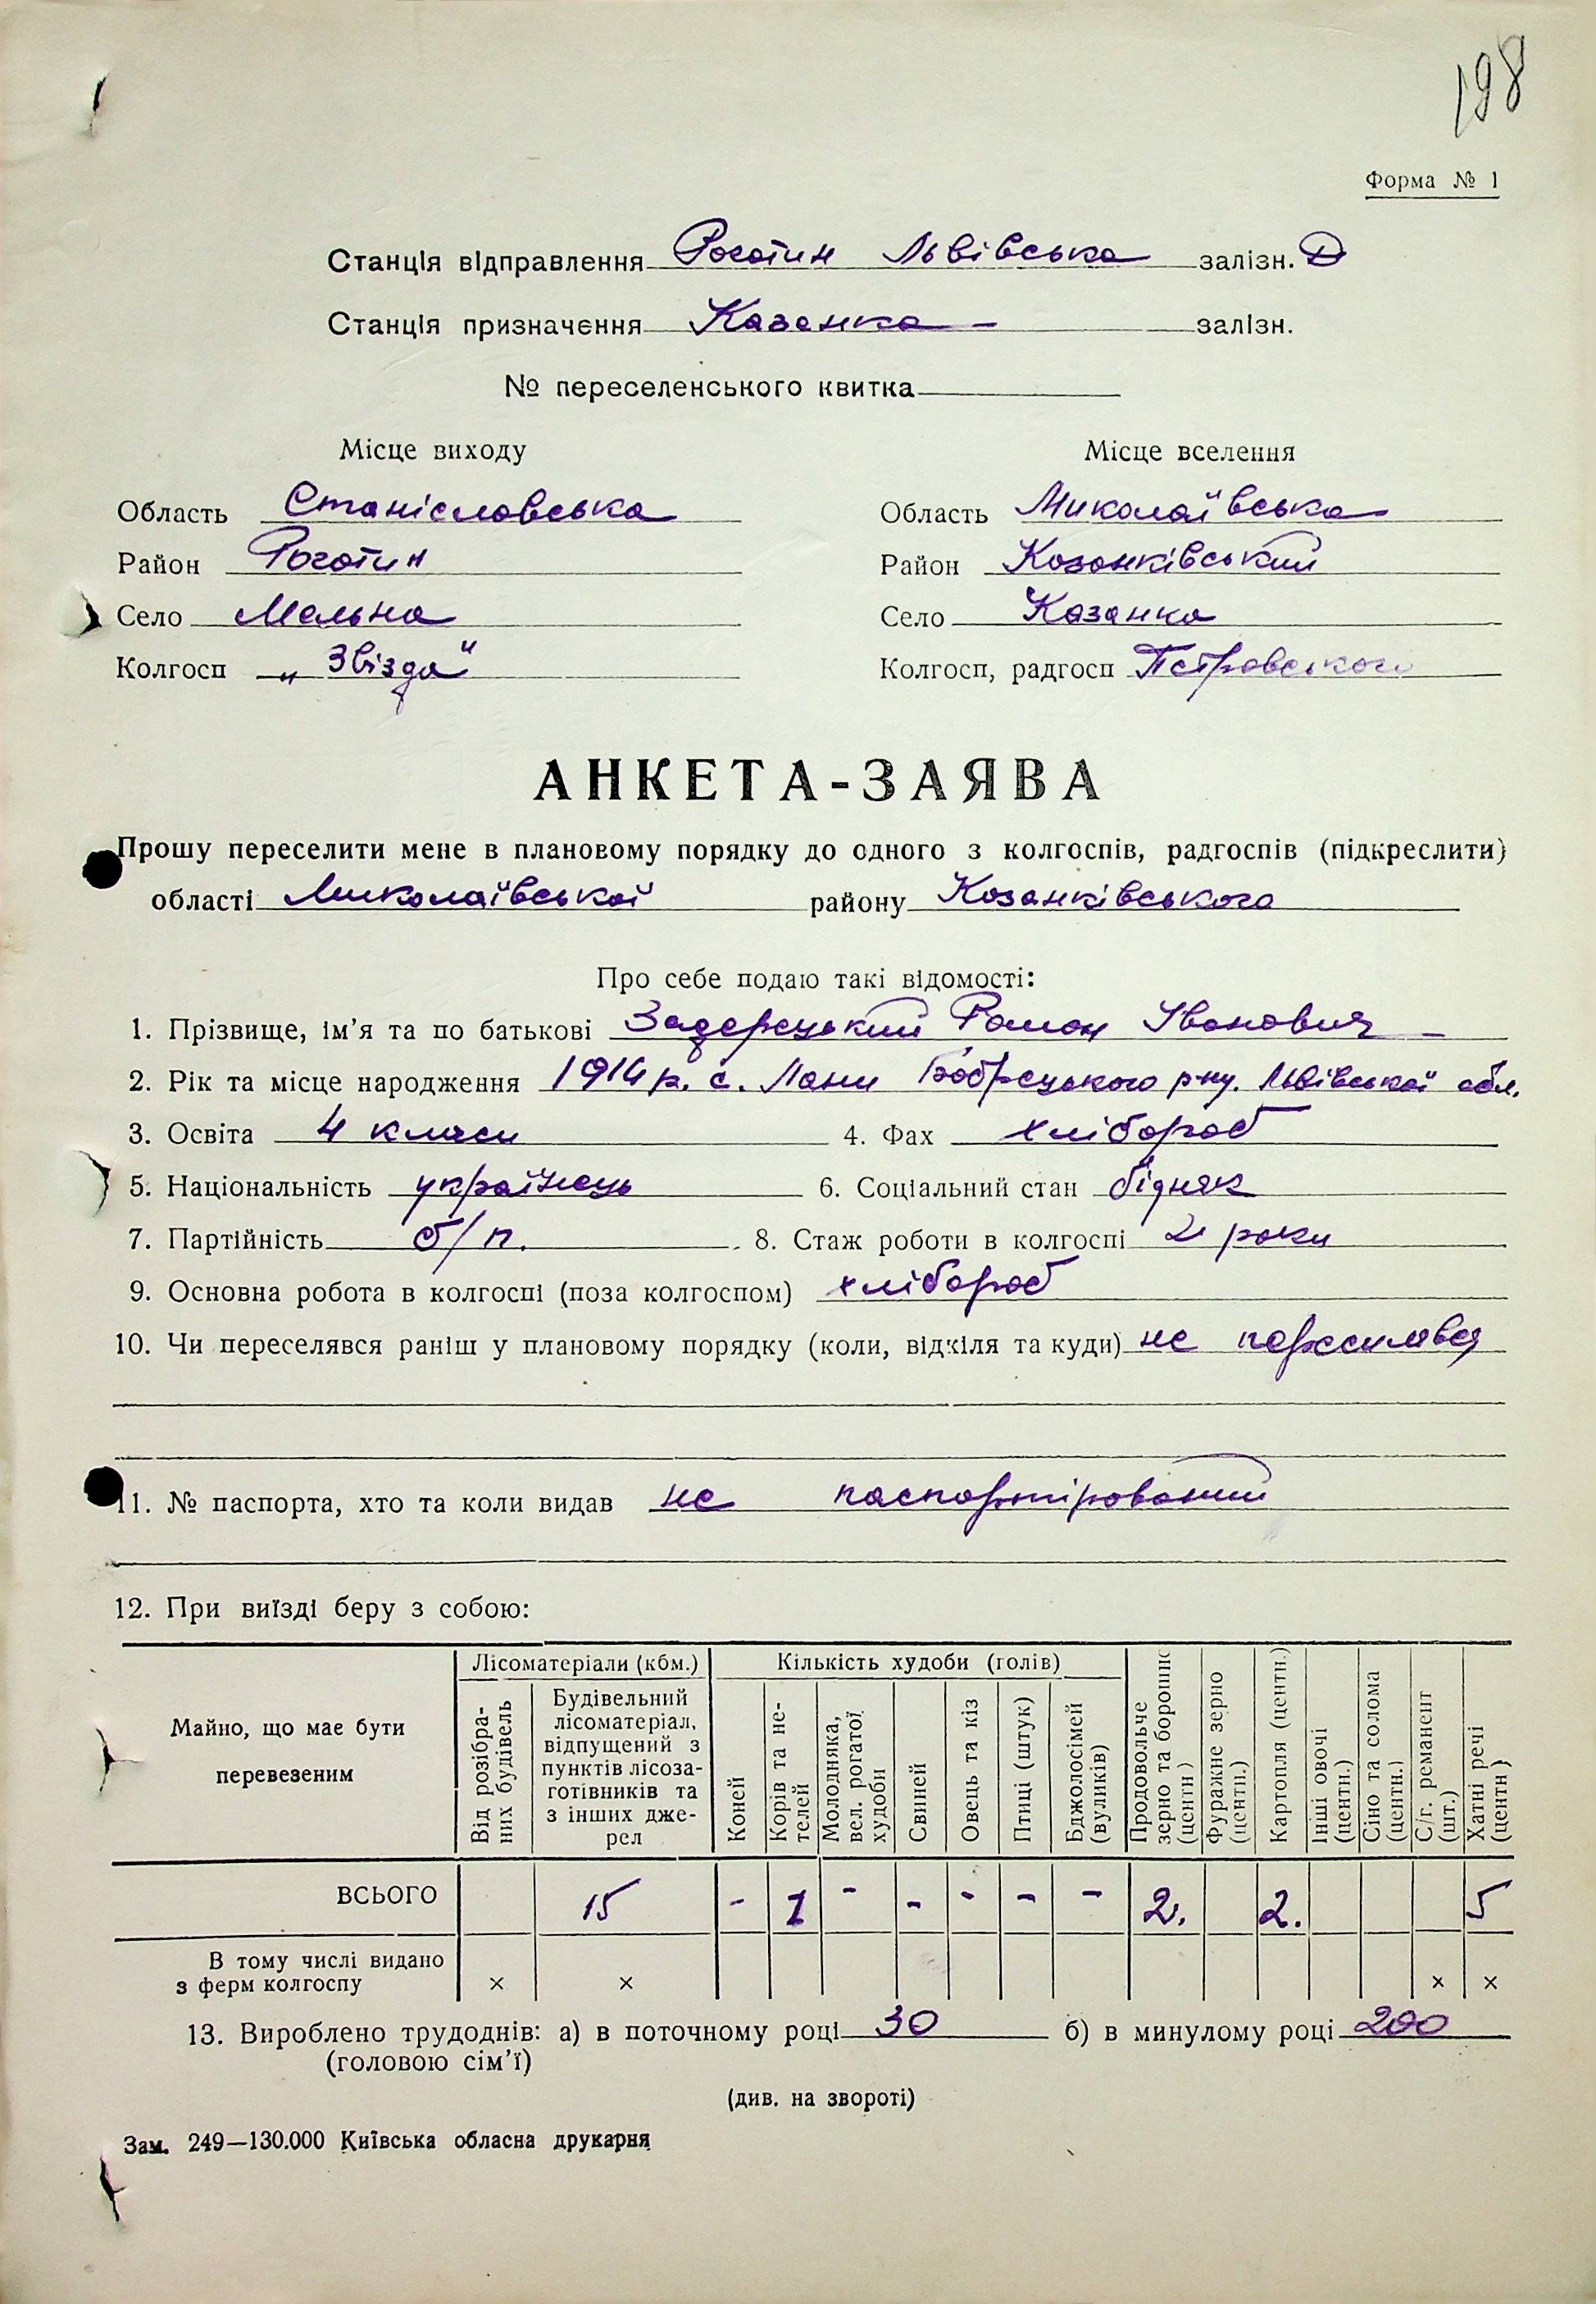 198
Форма № 1
Станція відправлення Рогатин Львівська залізн.
Станція призначення Казанка — залізн.
№ переселенського квитка
Місце виходу
Місце вселення
Область Станіславська
Область Миколаївська
Район Рогатин
Район Козанківський
Село Мельна
Село Казанка
Колгосп „Звізда"
Колгосп, радгосп Петровського
АНКЕТА-ЗАЯВА
Прошу переселити мене в плановому порядку до одного з колгоспів, радгоспів (підкреслити)
області Миколаївської району Козанківського
Про себе подаю такі відомості:
1. Прізвище, ім'я та по батькові Задерецький Роман Іванович —
2. Рік та місце народження 1914 р. с. Лани Бобрецького р-ну. Львівської обл.
3. Освіта 4 класи 4. Фах хлібороб
5. Національність українець 6. Соціальний стан бідняк
7. Партійність б/п. 8. Стаж роботи в колгоспі 2 роки
9. Основна робота в колгоспі (поза колгоспом) хлібороб
10. Чи переселявся раніш у плановому порядку (коли, відкіля та куди) не переселявся
11. № паспорта, хто та коли видав не паспортірований
12. При виїзді беру з собою:
Майно, що має бути перевезеним
Лісоматеріали (кбм.)
Кількість худоби (голів)
Від розібраних будівель
Будівельний лісоматеріал, відпущений з пунктів лісозаготівників та з інших джерел
Коней
Корів та нетелей
Молодняка, вел. рогатої худоби
Свиней
Овець та кіз
Птиці (штук)
Бджолосімей (вуликів)
Продовольче зерно та борошно (центн)
Фуражне зерно (центн.)
Картопля (центн.)
Інші овочі (центн.)
Сіно та солома (центн.)
С/г. реманент (шт.)
Хатні речі (центн)
ВСЬОГО 15 - 1 - - - - - 2. 2. 5
В тому числі видано
з ферм колгоспу × × × ×
13. Вироблено трудоднів: а) в поточному році 30 б) в минулому році 200
(головою сім'ї)
(див. на звороті)
Зам. 249—130.000 Київська обласна друкарня